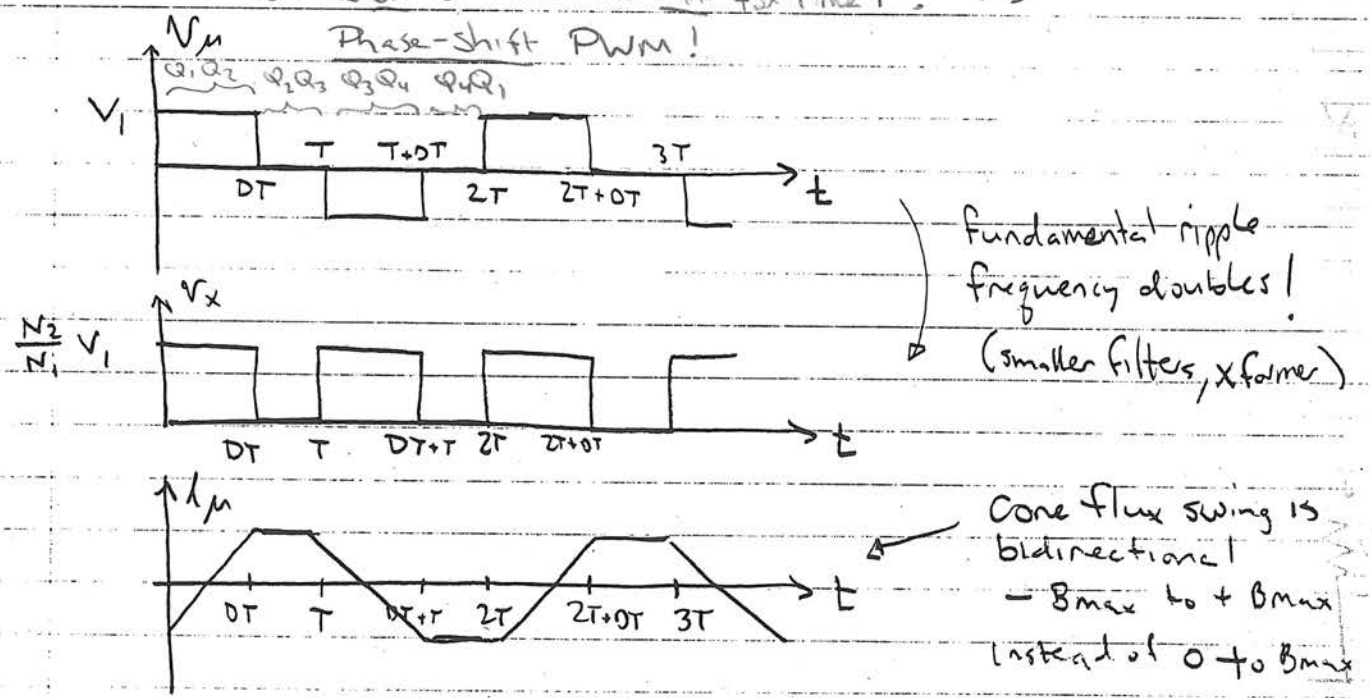 Phase-shift PWM!
Vμ
Q1Q2 Q2Q3 Q3Q4 Q4Q1
V1
T T+DT 3T
DT 2T 2T+DT t
fundamental ripple
frequency doubles!
(smaller filters, xformer)
Vx
N2/N1 V1
DT T DT+T 2T 2T+DT t
iμ
DT T DT+T 2T 2T+DT 3T t
Core flux swing is
bidirectional
- Bmax to + Bmax
instead of 0 to Bmax